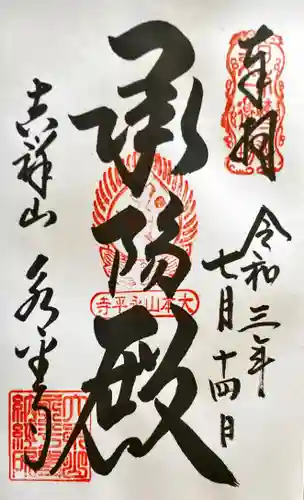 奉拝
令和三年
七月十四日
承陽殿
大本山永平寺
吉祥山
永平寺